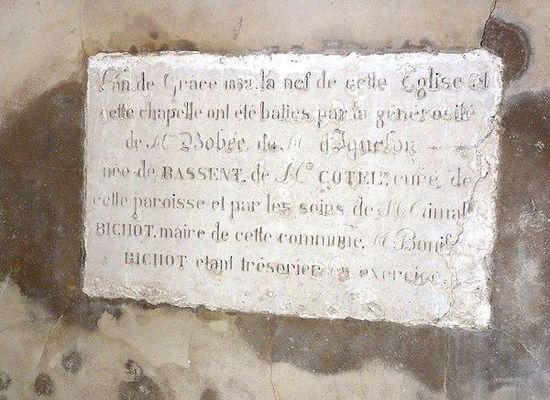 L'an de Grace 1852. la nef de cette Eglise et
cette chapelle ont été baties par la générosité
de Mr Bobée, du M d'Iquelon
née de BASSENT, de Mr COTEL, curé de
cette paroisse et par les soins de M.
BICHOT, maire de cette commune, M.
BICHOT etant trésorier en exercice.